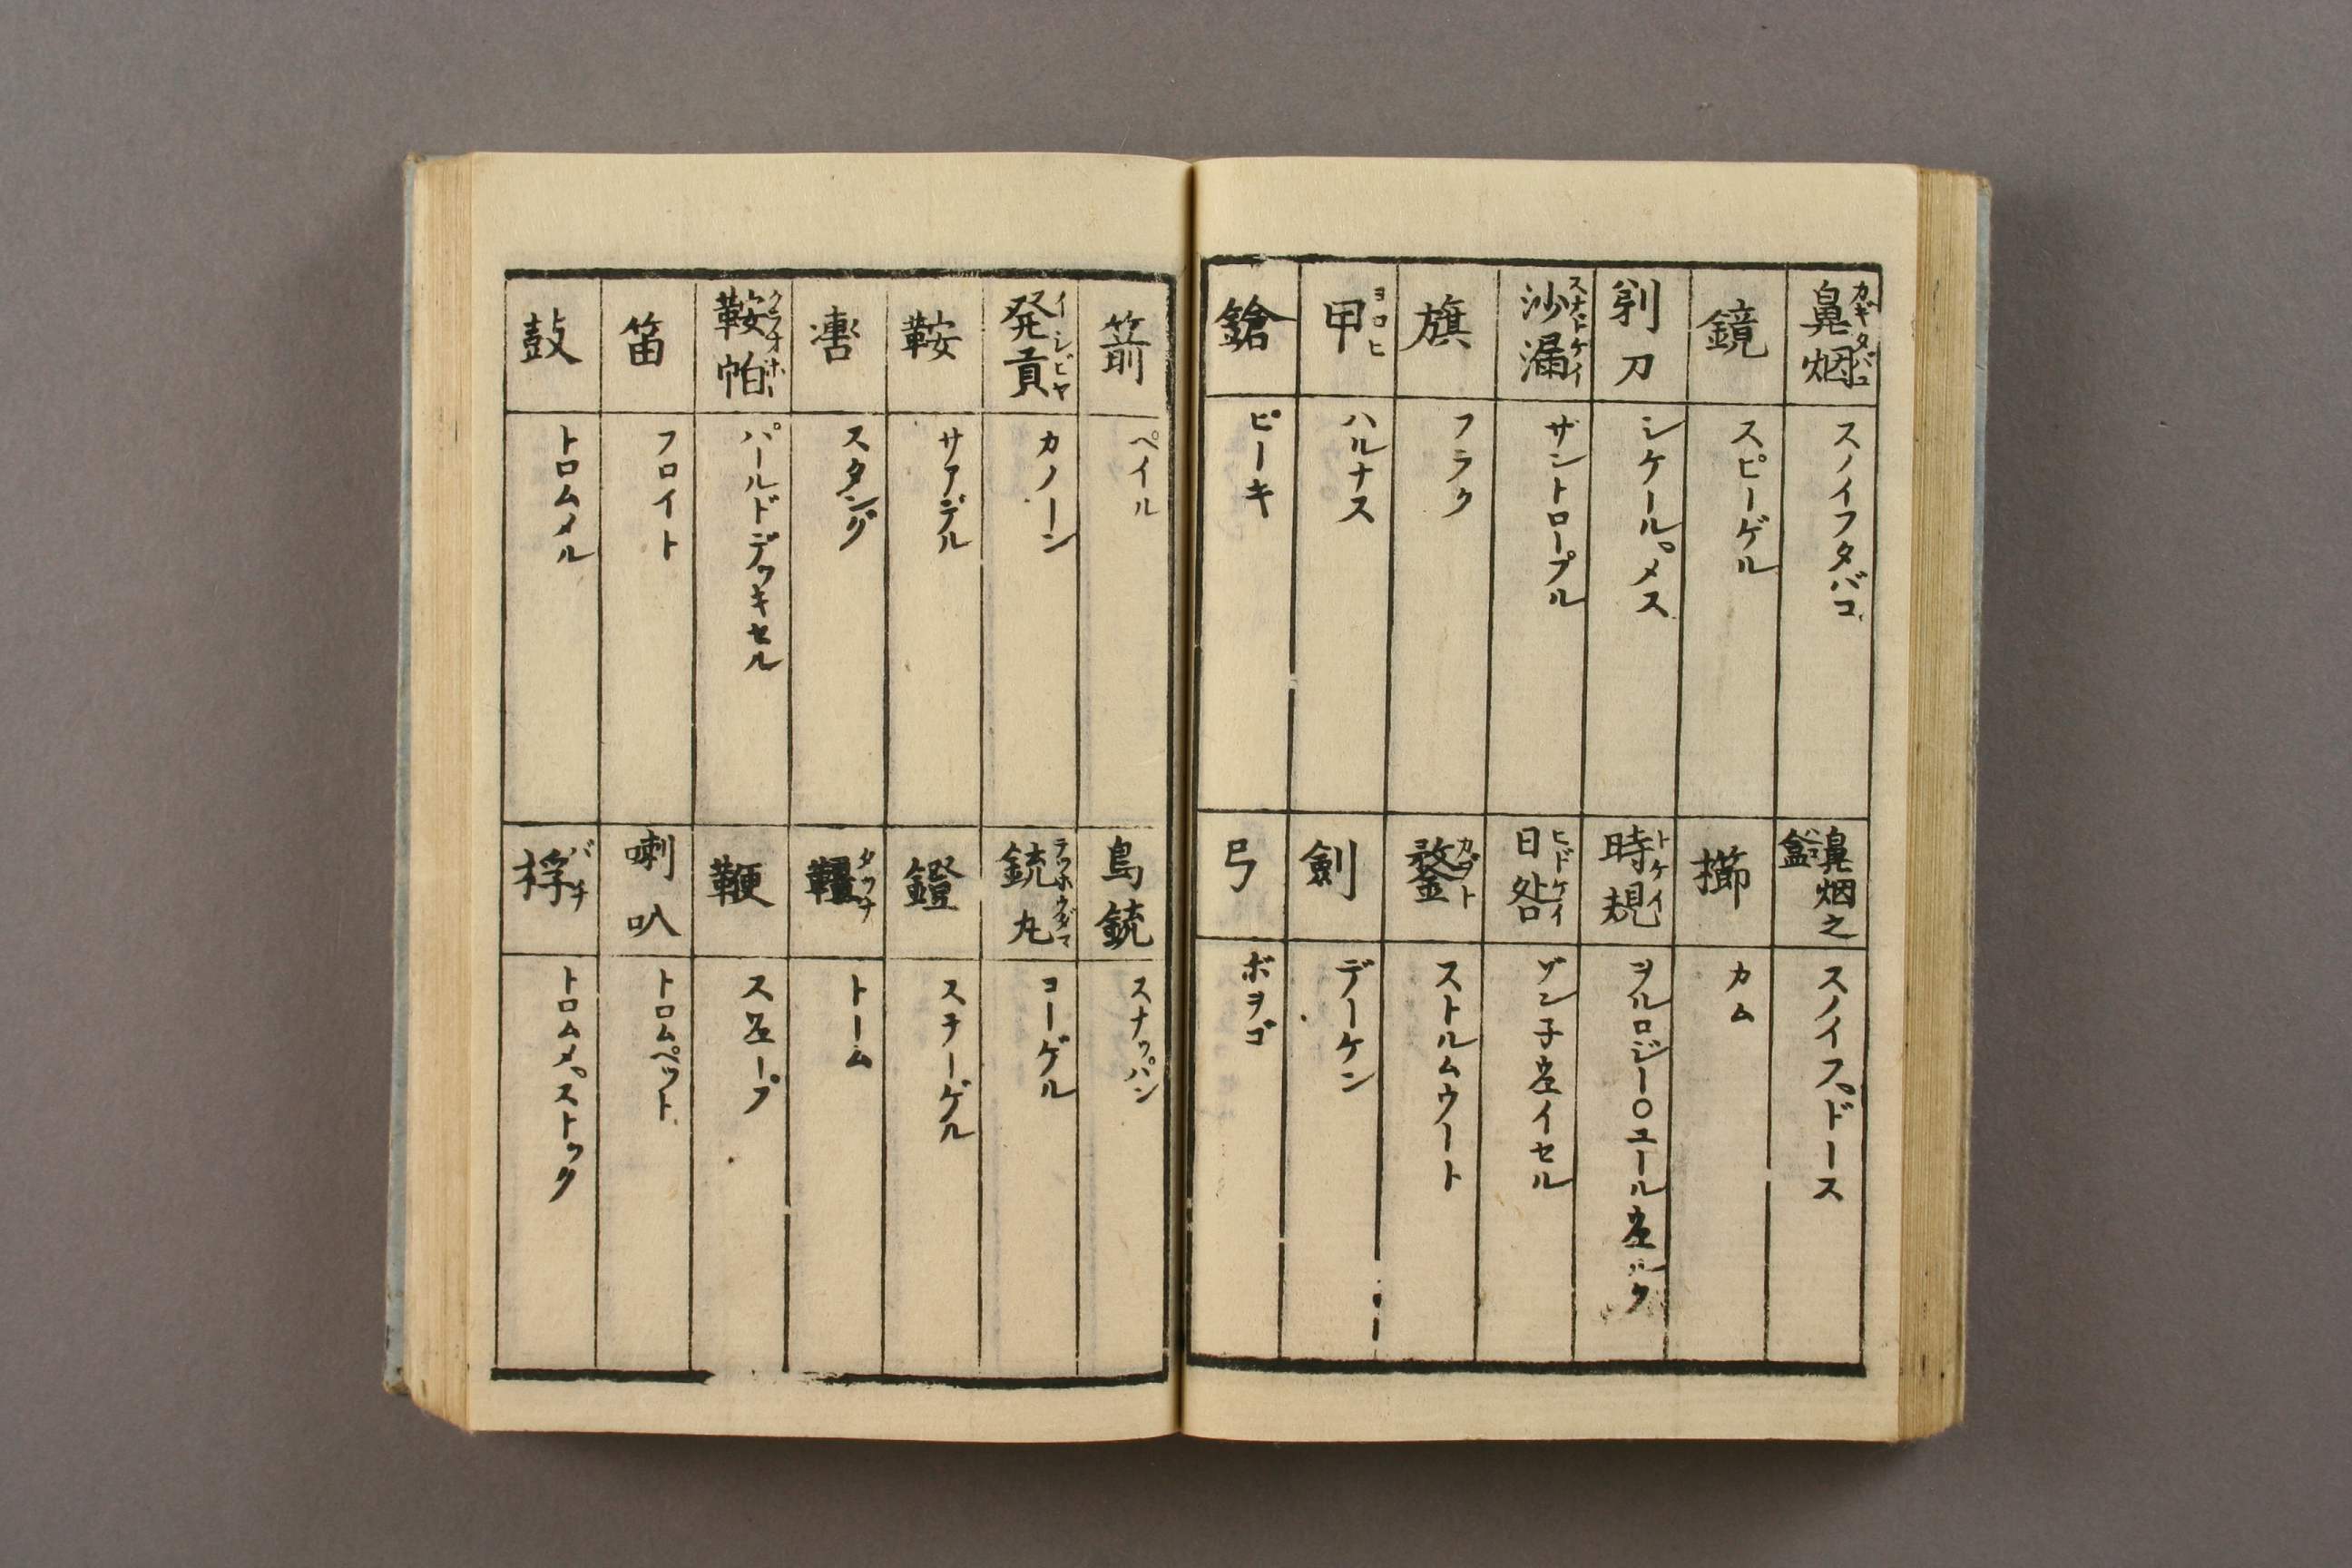 鼻烟 カギタバコ
スノイフタバコ
鏡
スピーゲル
剃刀
シケール。メス
沙漏 スナドケイ
ザントロープル
旗
フラク
甲 ヨロヒ
ハルナス
鎗
ピーキ
鼻烟之盒
スノイフ。ドース
櫛
カム
時規 トケイ
ヲルロジー〇ユール左ルク
日晷 ヒドケイ
ゾン子左イセル
鍪 カブト
ストルムウート
劍
デーケン
弓
ボヲゴ
箭
ペイル
発貢 イシビヤ
カノーン
鞍
サアデル
スタング
鞍帕 クラオホー
パールドデッキセル
笛
フロイト
鼓
トロムメル
鳥銃
スナッパン
銃丸 テッホウダマ
コーゲル
鐙
ステーゲル
韁 タヅナ
トーム
鞭
ス左ープ
喇叭
トロムペット
桴 バチ
トロムメ。ストック